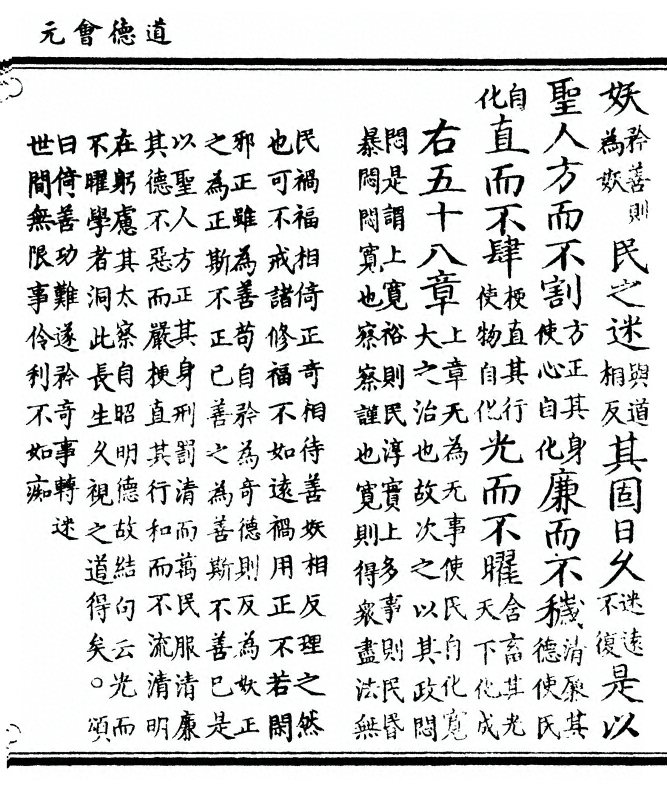 道德會元
妖矜善則為妖民之迷與道相反其固日久迷遠不復是以
聖人方而不割方正其身使心自化廉而不穢清廉其德使民
自化直而不肆梗直其行使物自化光而不曜含畜其光天下化成
右五十八章上章无為無事使民自化寬大之治也故次之以其政悶
悶是謂上寬裕則民淳實上多事則民昏
暴悶悶寬也察察謹也寬則得衆盡法無
民禍福相倚正奇相待善妖相反理之然
也可不戒諸修福不如遠禍用正不若閑
邪正雖為善苟自矜為奇德則反為妖正
之為正斯不正已善之為善斯不善已是
以聖人方正其身刑罰清而萬民服清廉
其德不惡而嚴梗直其行和而不流清明
在躬慮其太察自昭明德故結句云光而
不曜學者洞此長生久視之道得矣○頌
曰倚善功難遂矜奇事轉迷
世間無限事伶利不如痴